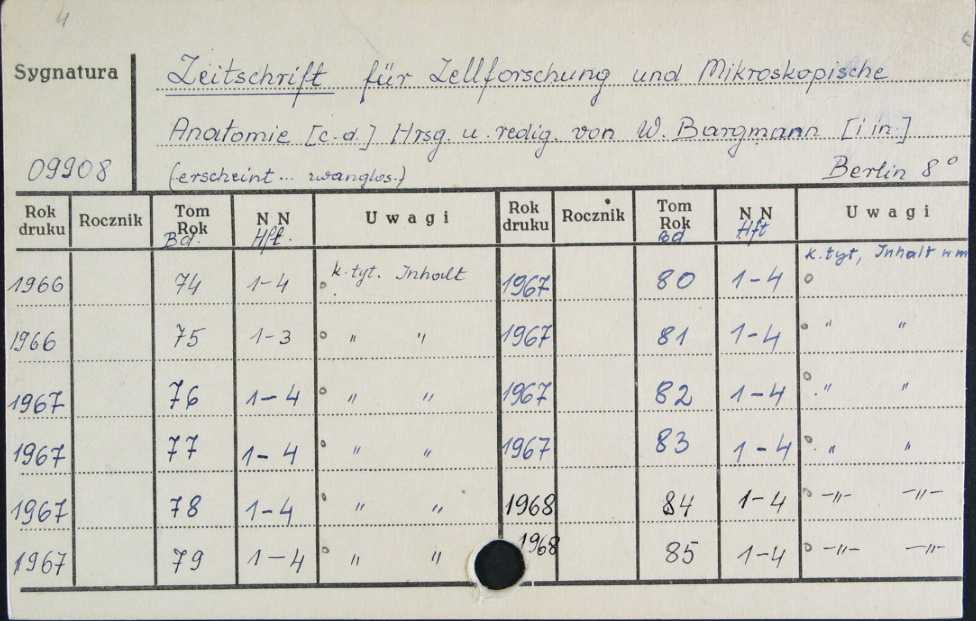 4
Sygnatura
Zeitschrift für Zellforschung und Mikroskopische
Anatomie [c.d.] Hrsg. u. redig. von W. Bargmann [i in.]
09908
(erscheint... zwanglos.)
Berlin 8°
Rok druku Rocznik Tom Rok Bd. NN Hft. Uwagi Rok druku Rocznik Tom Rok Bd NN Hft Uwagi
1966 74 1-4 k.tyt. Inhalt 1967 80 1-4 k.tyt, Inhalt
1966 75 1-3 " " 1967 81 1-4 " "
1967 76 1-4 " " 1967 82 1-4 " "
1967 77 1-4 " " 1967 83 1-4 " "
1967 78 1-4 " " 1968 84 1-4 -"- -"-
1967 79 1-4 " " 1968 85 1-4 -"- -"-